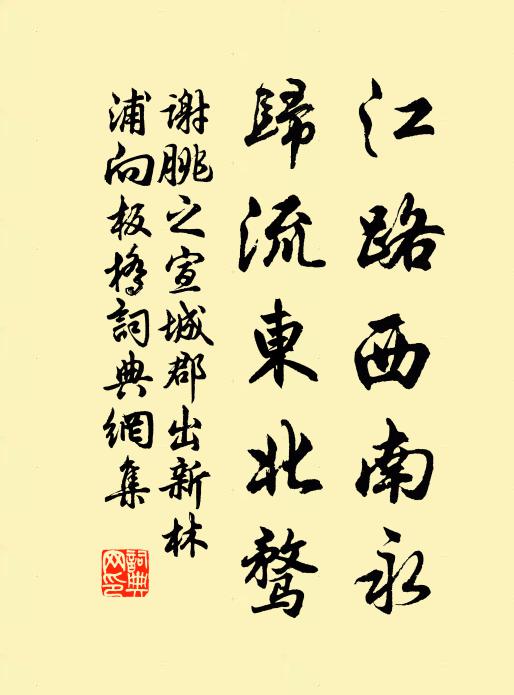 江路西南永
歸流東北鶩
謝朓之宣城郡出新林
浦向板橋詞典網集
詞典
网印